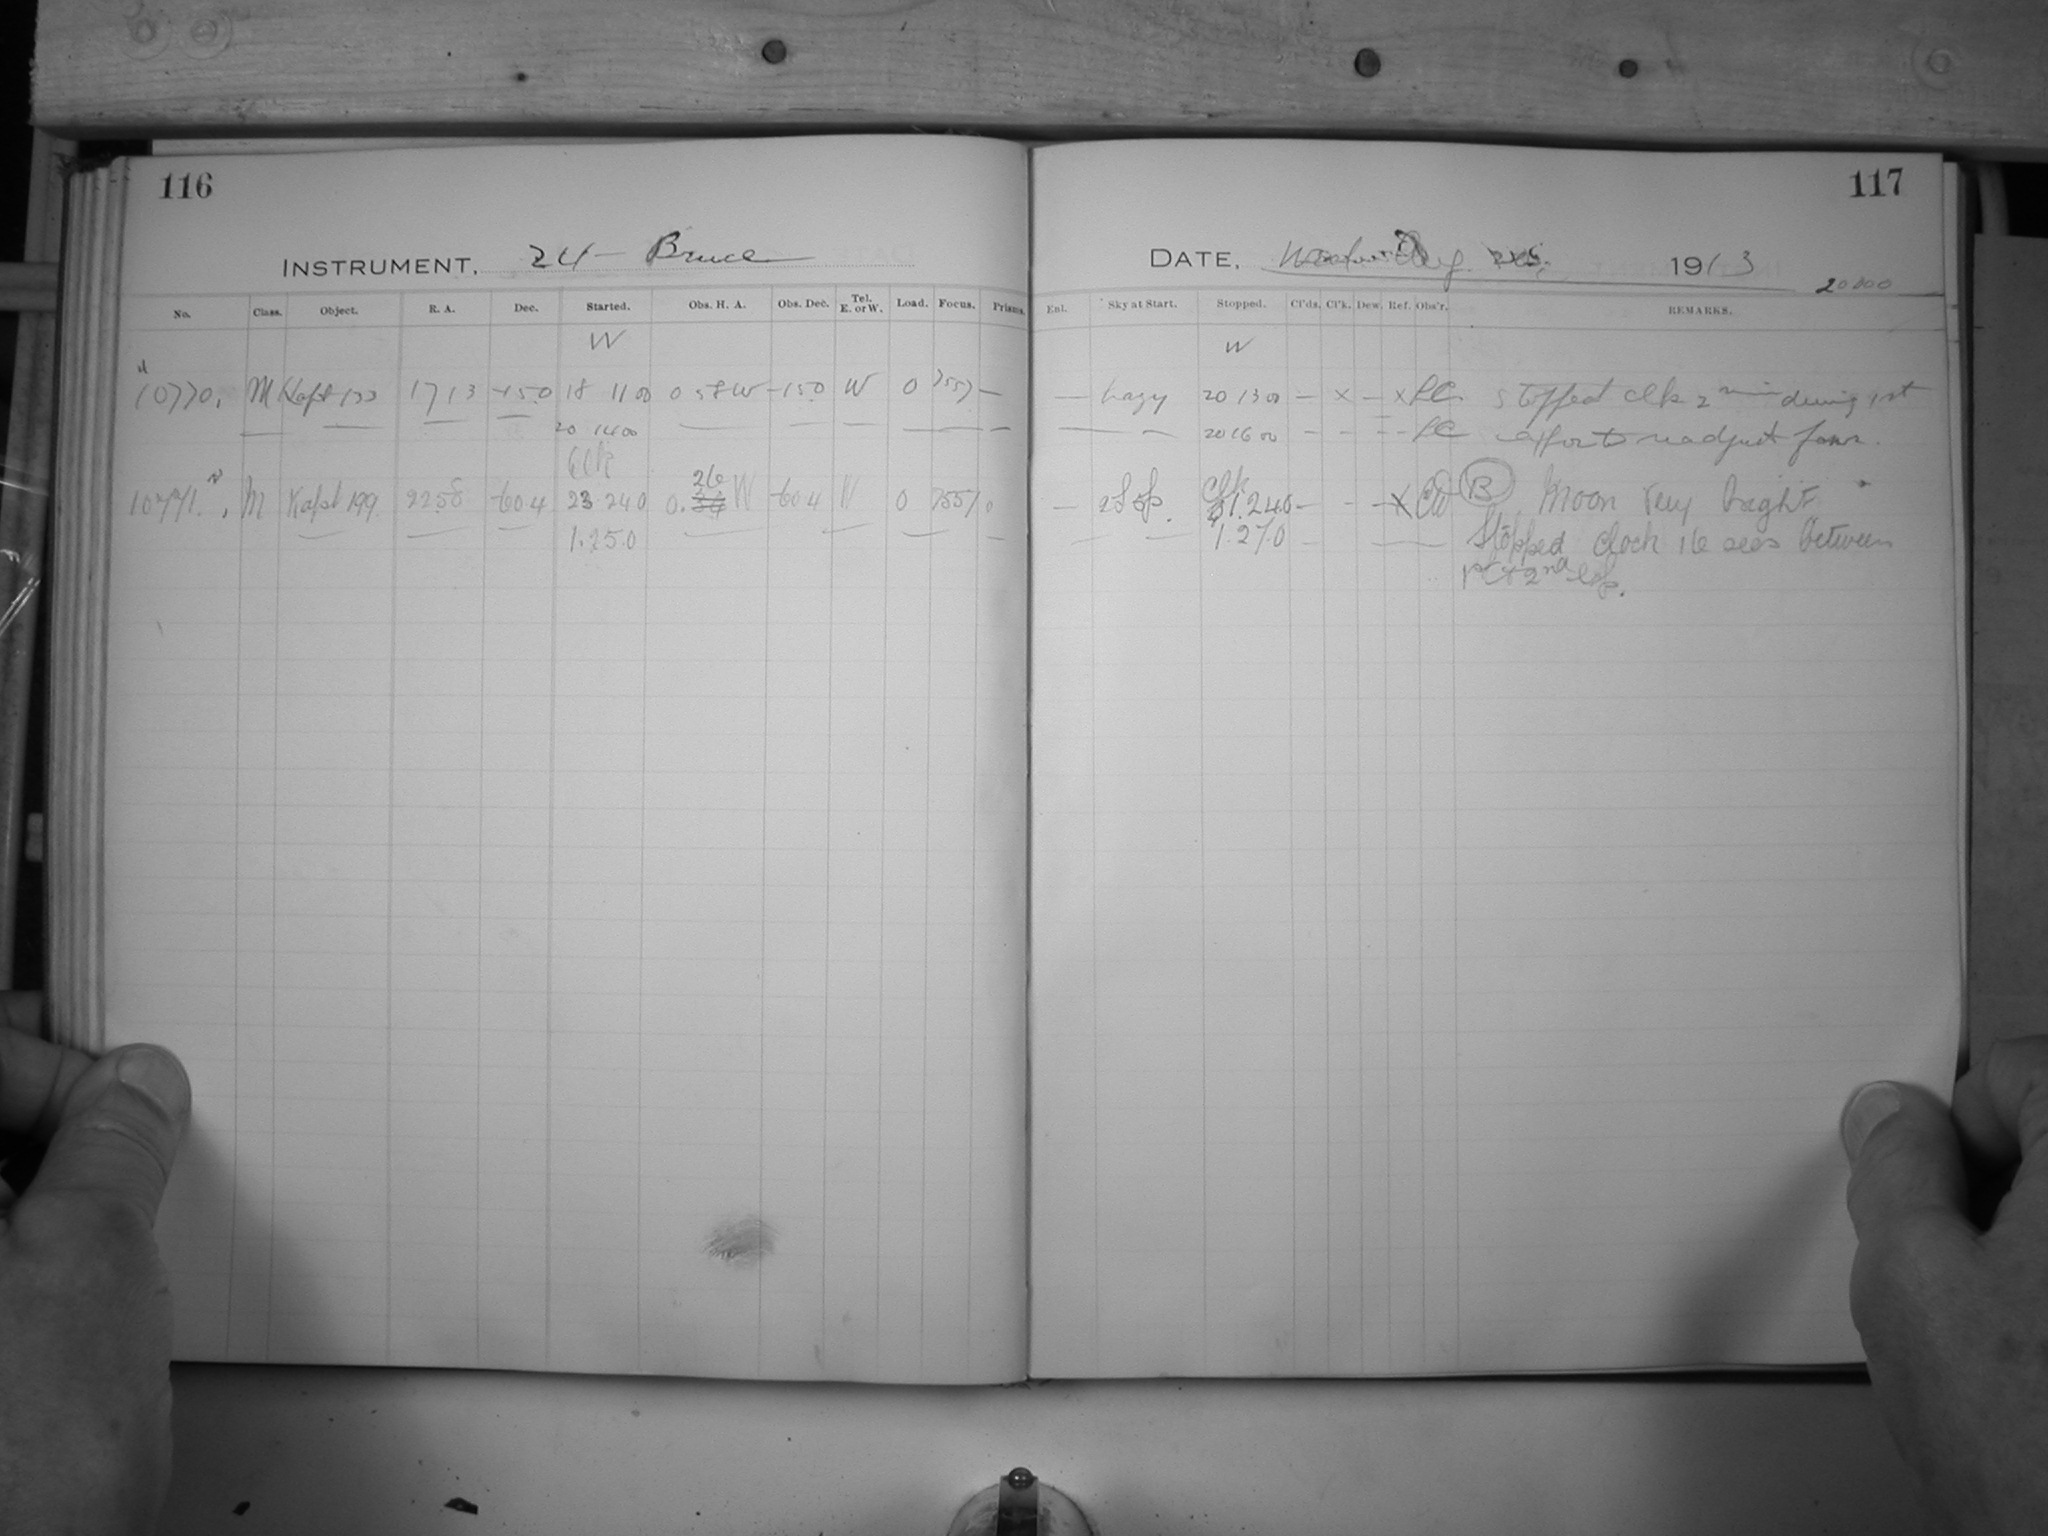 116
INSTRUMENT, 24 - Bruce
No. Class. Object. R. A. Dec. Started. Obs. H. A. Obs. Dec. Tel. E. or W. Load. Focus. Prisms.
W
10770. M Kapt 133 17 13 -15.0 18 11 00 0 58 W -15.0 W 0 —
20 14 00
Clk
10771. M Kapt 199 22 58 -60.4 23 24 0 0. 26 W -60.4 W 0 7557 0
1.25.0
117
DATE, Aug. 1913
20000
Enl. Sky at Start. Stopped. Cl'ds. Cl'k. Dew. Ref. Obs'r. REMARKS.
W
— hazy 20 13 00 — × — × LC. stopped clk 2 min during 1st
20 16 00 - - - - LC
Clk
— 1.24.0 — - - × (B) Moon very bright
1.27.0 Stopped clock 16 secs between
1st + 2nd exp.